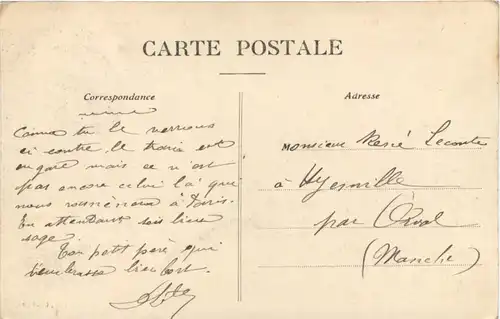 CARTE POSTALE
Correspondance
Adresse
Comme tu le verras
ci contre, le train est
en gare mais ce n'est
pas encore celui là que
nous ramènera à Paris.
En attendant sois bien
sage.
Ton petit père qui
t'embrasse bien fort.
Monsieur René Lecomte
à Hyenville
par Orval
(Manche)